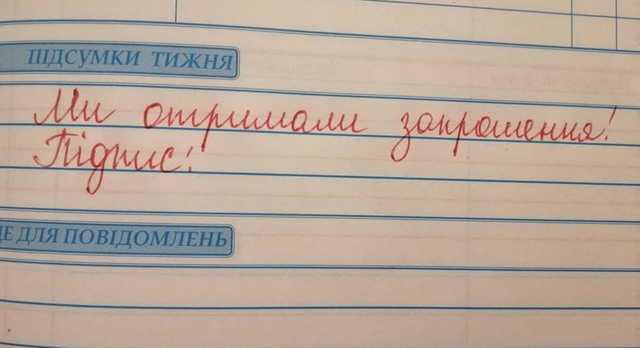 ПІДСУМКИ ТИЖНЯ
Ми отримали запрошення!
Підпис!
ДЛЯ ПОВІДОМЛЕНЬ